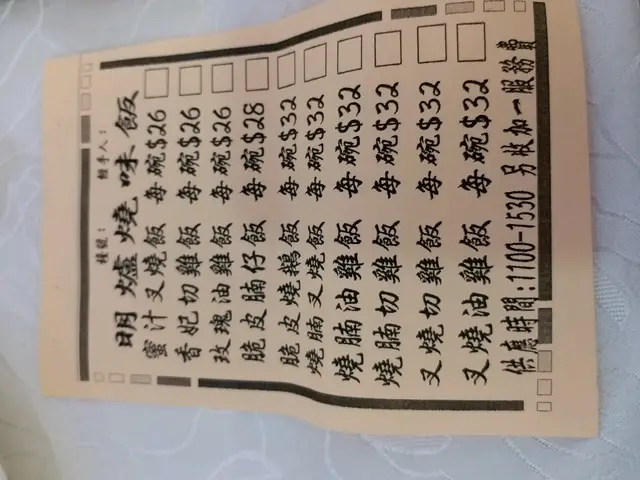 檯號： 經手人：
明爐燒味飯
蜜汁叉燒飯 每碗$26
香妃切雞飯 每碗$26
玫瑰油雞飯 每碗$26
脆皮腩仔飯 每碗$28
脆皮燒鵝飯 每碗$32
燒腩叉燒飯 每碗$32
燒腩油雞飯 每碗$32
燒腩切雞飯 每碗$32
叉燒切雞飯 每碗$32
叉燒油雞飯 每碗$32
供應時間:1100-1530 另收加一服務費